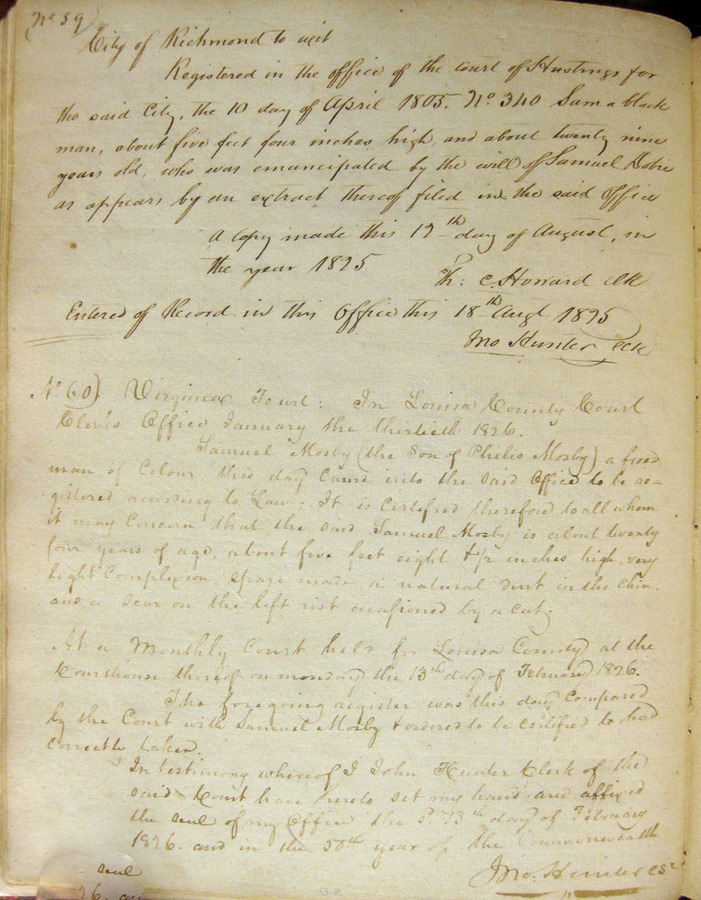 (No 59)
City of Richmond to wit
Registered in the office of the court of Hustings for
the said City, the 10 day of April 1805. No 340 Sam a black
man, about five feet four inches high, and about twenty nine
years old, who was emancipated by the will of Samuel
as appears by an extract thereof filed in the said office
a copy made this 12th day of August, in
the year 1825
Th: C. Howard clk
Entered of Record in this Office this 18th Augt 1825
Jno Hunter cck
No 60) Virginia To wit: In Louisa County Court
Clerks Office January the thirtieth 1826.
Samuel Mosby (the Son of Philis Mosby) a free
man of Colour this day Came into the said Office to be re=
gistered according to Law. It is Certifyed therefore to all whom
it may Concern that the said Samuel Mosby is about twenty
four years of age, about five feet eight & 1/2 inches high, very
light Complexion, spare made, a natural dent in the Chin
and a Scar on the left rist occasioned by a cut;
At a Monthly Court held for Louisa County at the
Courthouse thereof on monday the 13th day of February 1826.
The foregoing register was this day Compared
by the Court with Samuel Mosby & ordered to be Certified to be
Correctly taken.
In testimony whereof I John Hunter Clerk of the
said Court have hereto set my hand and affixed
the seal of my Office the sd 13th day of February
1826. and in the 50th year of the Commonwealth
Jno. Hunter
seal
26. an